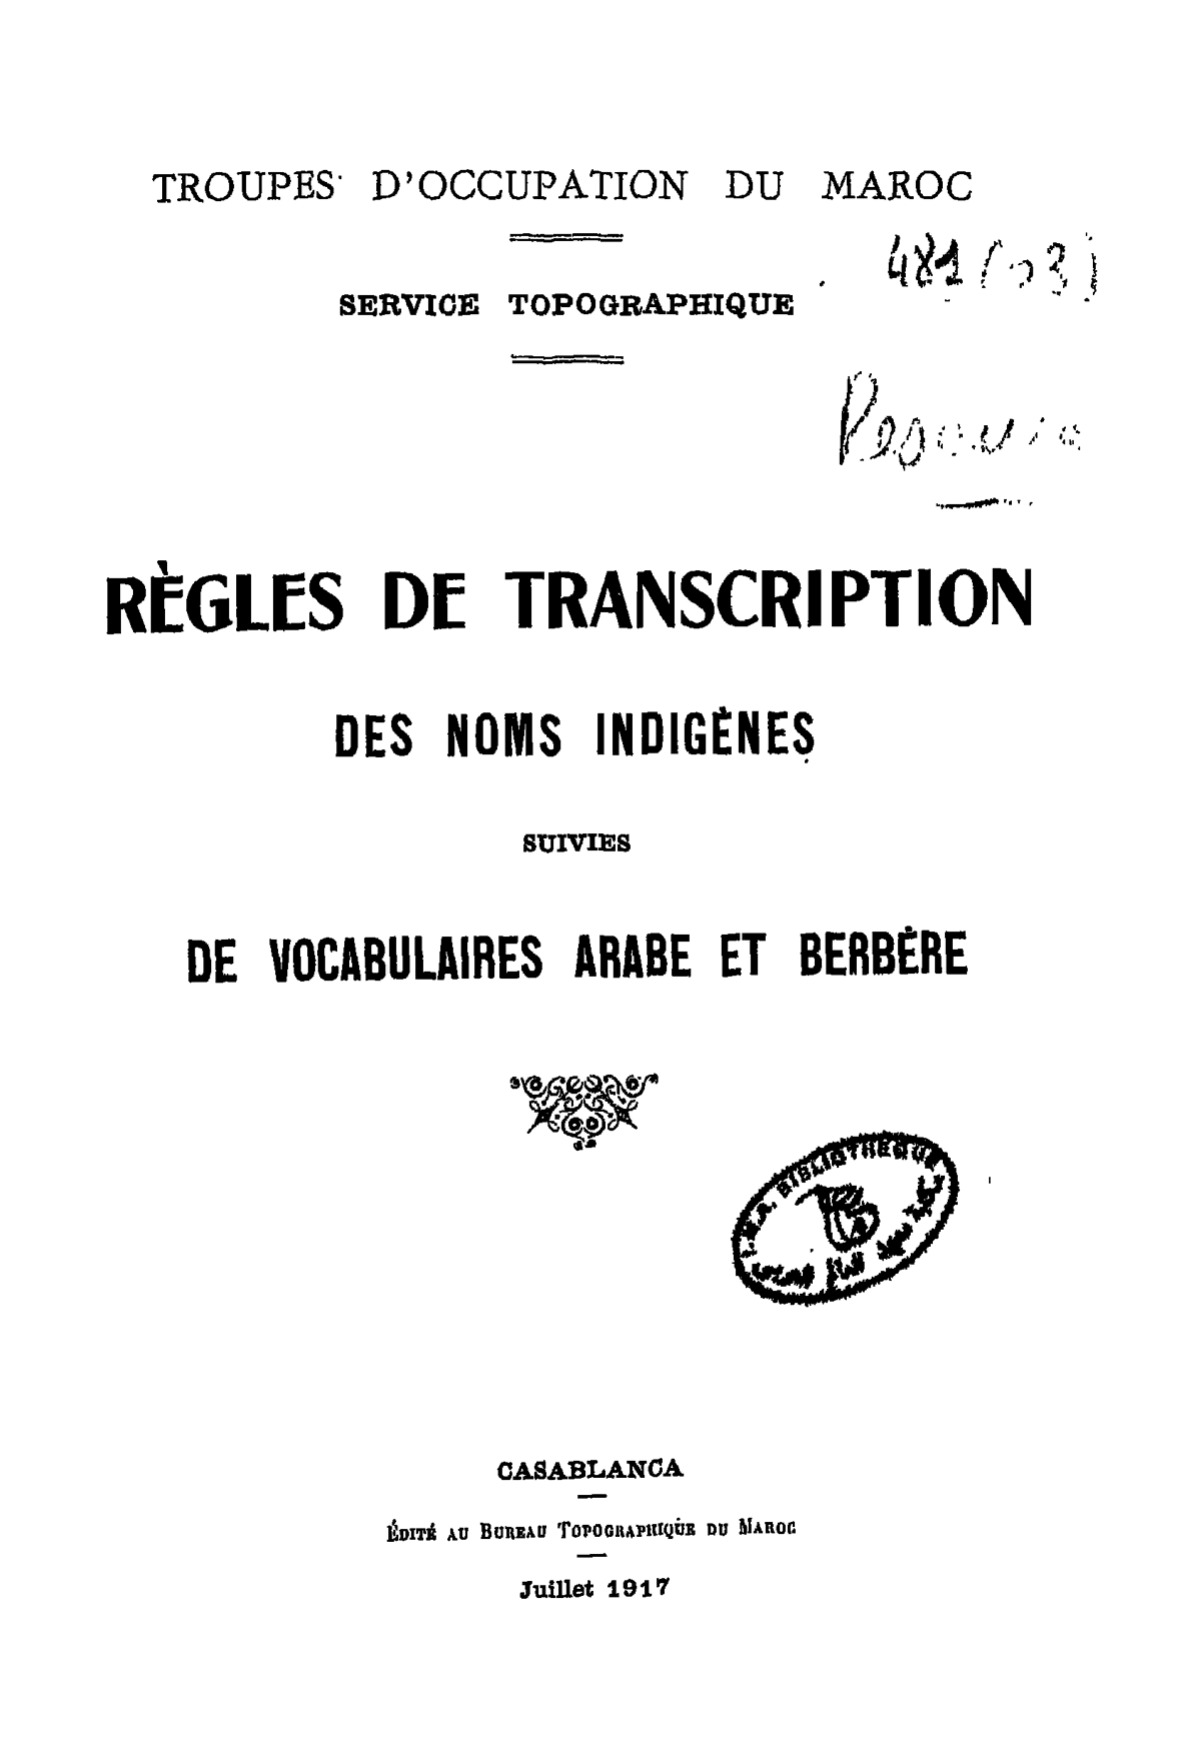 TROUPES D'OCCUPATION DU MAROC
481 (03)
SERVICE TOPOGRAPHIQUE
RÈGLES DE TRANSCRIPTION
DES NOMS INDIGÈNES
SUIVIES
DE VOCABULAIRES ARABE ET BERBÈRE
BIBLIOTHEQUE
CASABLANCA
ÉDITÉ AU BUREAU TOPOGRAPHIQUE DU MAROC
Juillet 1917